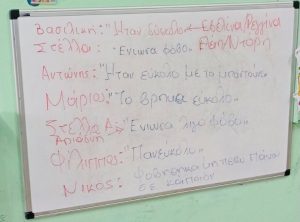 Βασιλική: "Ήταν εύκολο" Εβελίνα, Ρεγγίνα
Στέλλα: "Ένιωσα φόβο"
Αντώνης: "Ήταν εύκολο με το μπαστούνι"
Μάριος: "Το βρήκα εύκολο"
Στέλλα Α. "Ένιωσα λίγο φόβο"
Αριάδνη
Φίλιππος: "Πανεύκολο"
Νίκος: Φοβήθηκα μη πέσω πάνω
σε κάποιον